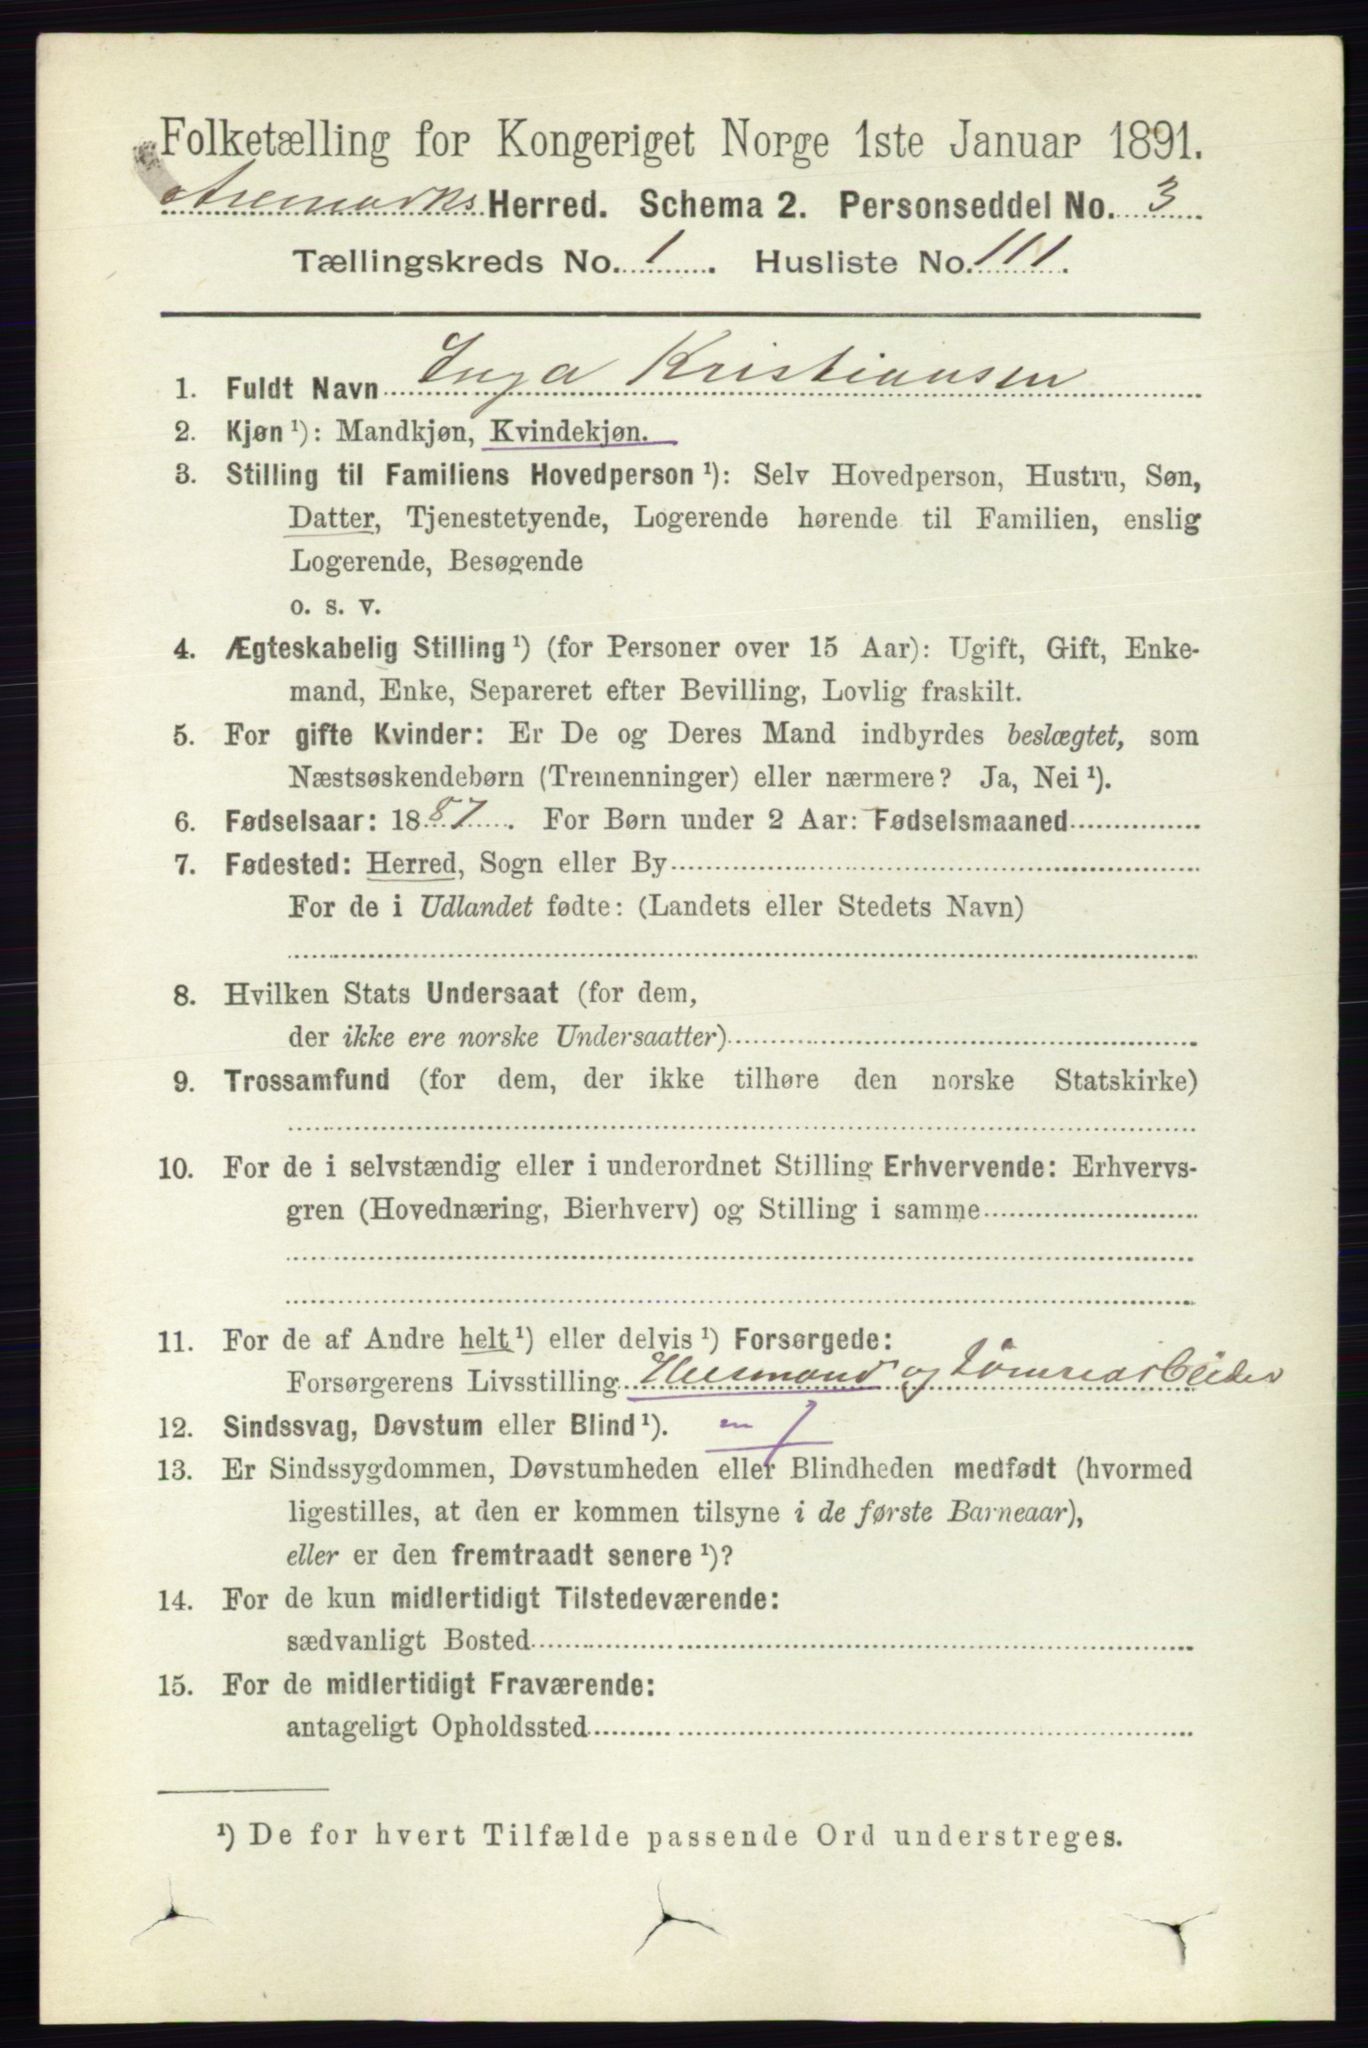 Folketælling for Kongeriget Norge 1ste Januar 1891.
Aremarks Herred. Schema 2. Personseddel No. 3
Tællingskreds No. 1. Husliste No. 111.
1. Fuldt Navn Inga Kristiansen
2. Kjøn ¹): Mandkjøn, Kvindekjøn.
3. Stilling til Familiens Hovedperson ¹): Selv Hovedperson, Hustru, Søn,
Datter, Tjenestetyende, Logerende hørende til Familien, enslig
Logerende, Besøgende
o. s. v.
4. Ægteskabelig Stilling ¹) (for Personer over 15 Aar): Ugift, Gift, Enke-
mand, Enke, Separeret efter Bevilling, Lovlig fraskilt.
5. For gifte Kvinder: Er De og Deres Mand indbyrdes beslægtet, som
Næstsøskendebørn (Tremenninger) eller nærmere? Ja, Nei ¹).
6. Fødselsaar: 1887. For Børn under 2 Aar: Fødselsmaaned
7. Fødested: Herred, Sogn eller By
For de i Udlandet fødte: (Landets eller Stedets Navn)
8. Hvilken Stats Undersaat (for dem,
der ikke ere norske Undersaatter)
9. Trossamfund (for dem, der ikke tilhøre den norske Statskirke)
10. For de i selvstændig eller i underordnet Stilling Erhvervende: Erhvervs-
gren (Hovednæring, Bierhverv) og Stilling i samme
11. For de af Andre helt ¹) eller delvis ¹) Forsørgede:
Forsørgerens Livsstilling Husmand og tømrearbeider
12. Sindssvag, Døvstum eller Blind ¹).
13. Er Sindssygdommen, Døvstumheden eller Blindheden medfødt (hvormed
ligestilles, at den er kommen tilsyne i de første Barneaar),
eller er den fremtraadt senere ¹)?
14. For de kun midlertidigt Tilstedeværende:
sædvanligt Bosted
15. For de midlertidigt Fraværende:
antageligt Opholdssted
¹) De for hvert Tilfælde passende Ord understreges.